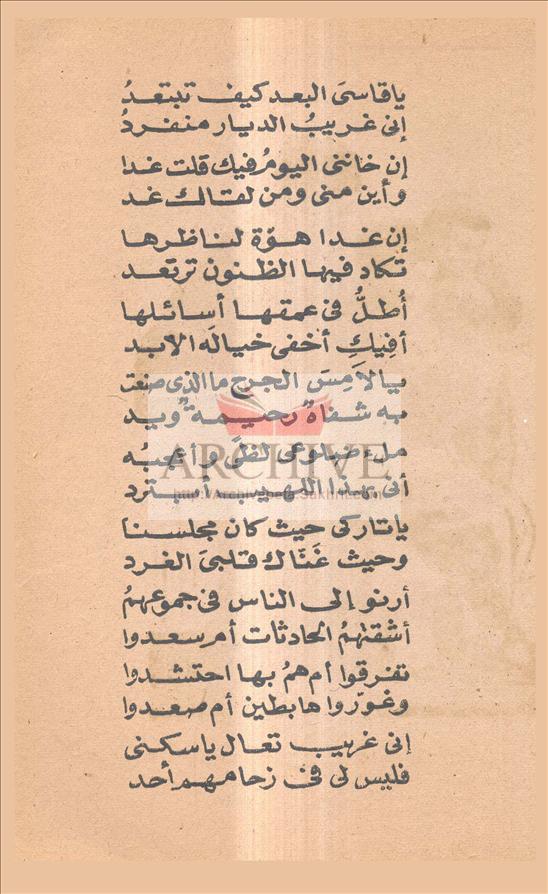 يا قاسىَ البعد كيف تبتعدُ
إنى غريبُ الديار منفردُ
إن خاننى اليومُ فيك قلت غدا
وأين منى ومن لقاك غد
إن غدا هوّة لناظرها
تكاد فيها الظنون ترتعد
أُطلُّ فى عمقها أسائلها
أفيكِ أخفى خياله الابد
يا لأمِسَ الجرح ما الذى صنعت
به شفاهٌ رحيمةٌ ويد
ملء ضلوعى لظًى وأعجبُه
أنى بهذا اللهيب أبترد
يا تاركى حيث كان مجلسنا
وحيث غَنّاك قلبىَ الغرد
أرنو إلى الناس فى جموعهمُ
أشقتهُمُ الحادثات أم سعدوا
تفرقوا أم همُ بها احتشدوا
وغوّروا هابطين أم صعدوا
إنى غريب تعال يا سكنى
فليس لى فى زحامهم أحد
ARCHIVE
http://Archivebeta.Sakhrit.com